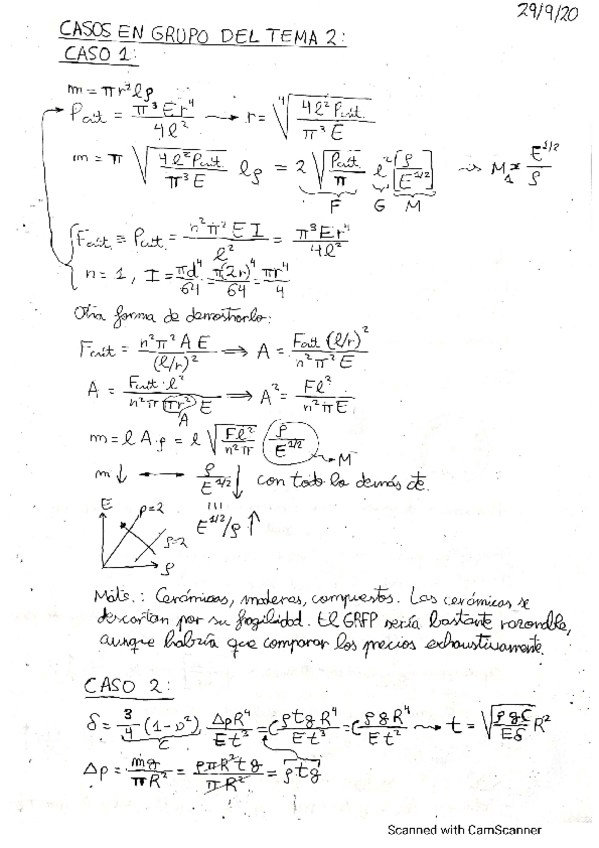 29/9/20
CASOS EN GRUPO DEL TEMA 2:
CASO 1:
m = πr²lρ
Pcrit = π³Er⁴/4l² → r = ⁴√(4l²Pcrit/π³E)
m = π √(4l²Pcrit./π³E) lρ = 2 √(Pcrit/π) l² [ρ/E^(1/2)] → M₁ = E^(1/2)/ρ
F G M
Fcrit. ≡ Pcrit. = n²π²EI/l² = π³Er⁴/4l²
n = 1, I = πd⁴/64 = π(2r)⁴/64 = πr⁴/4
Otra forma de demostrarlo:
Fcrit = n²π²AE/(l/r)² ⟹ A = Fcrit (l/r)²/n²π²E
A = Fcrit·l²/n²π(πr²)E ⟹ A² = Fl²/n²πE
A
m = lAρ = l √(Fl²/n²π) (ρ/E^(1/2)) → M
m↓ ⟷ ρ/E^(1/2)↓ con todo lo demás cte.
E^(1/2)/ρ ↑
E
p=2
ρ
Máts.: Cerámicas, maderas, compuestos. Las cerámicas se
descartan por su fragilidad. El GRFP sería bastante razonable,
aunque habría que comparar los precios exhaustivamente.
CASO 2:
δ = 3/4 (1-ν²) ΔpR⁴/Et³ = C ρtgR⁴/Et³ = C ρgR⁴/Et² → t = √(ρgC/Eδ) R²
C
Δp = mg/πR² = ρπR²tg/πR² = ρtg
Scanned with CamScanner